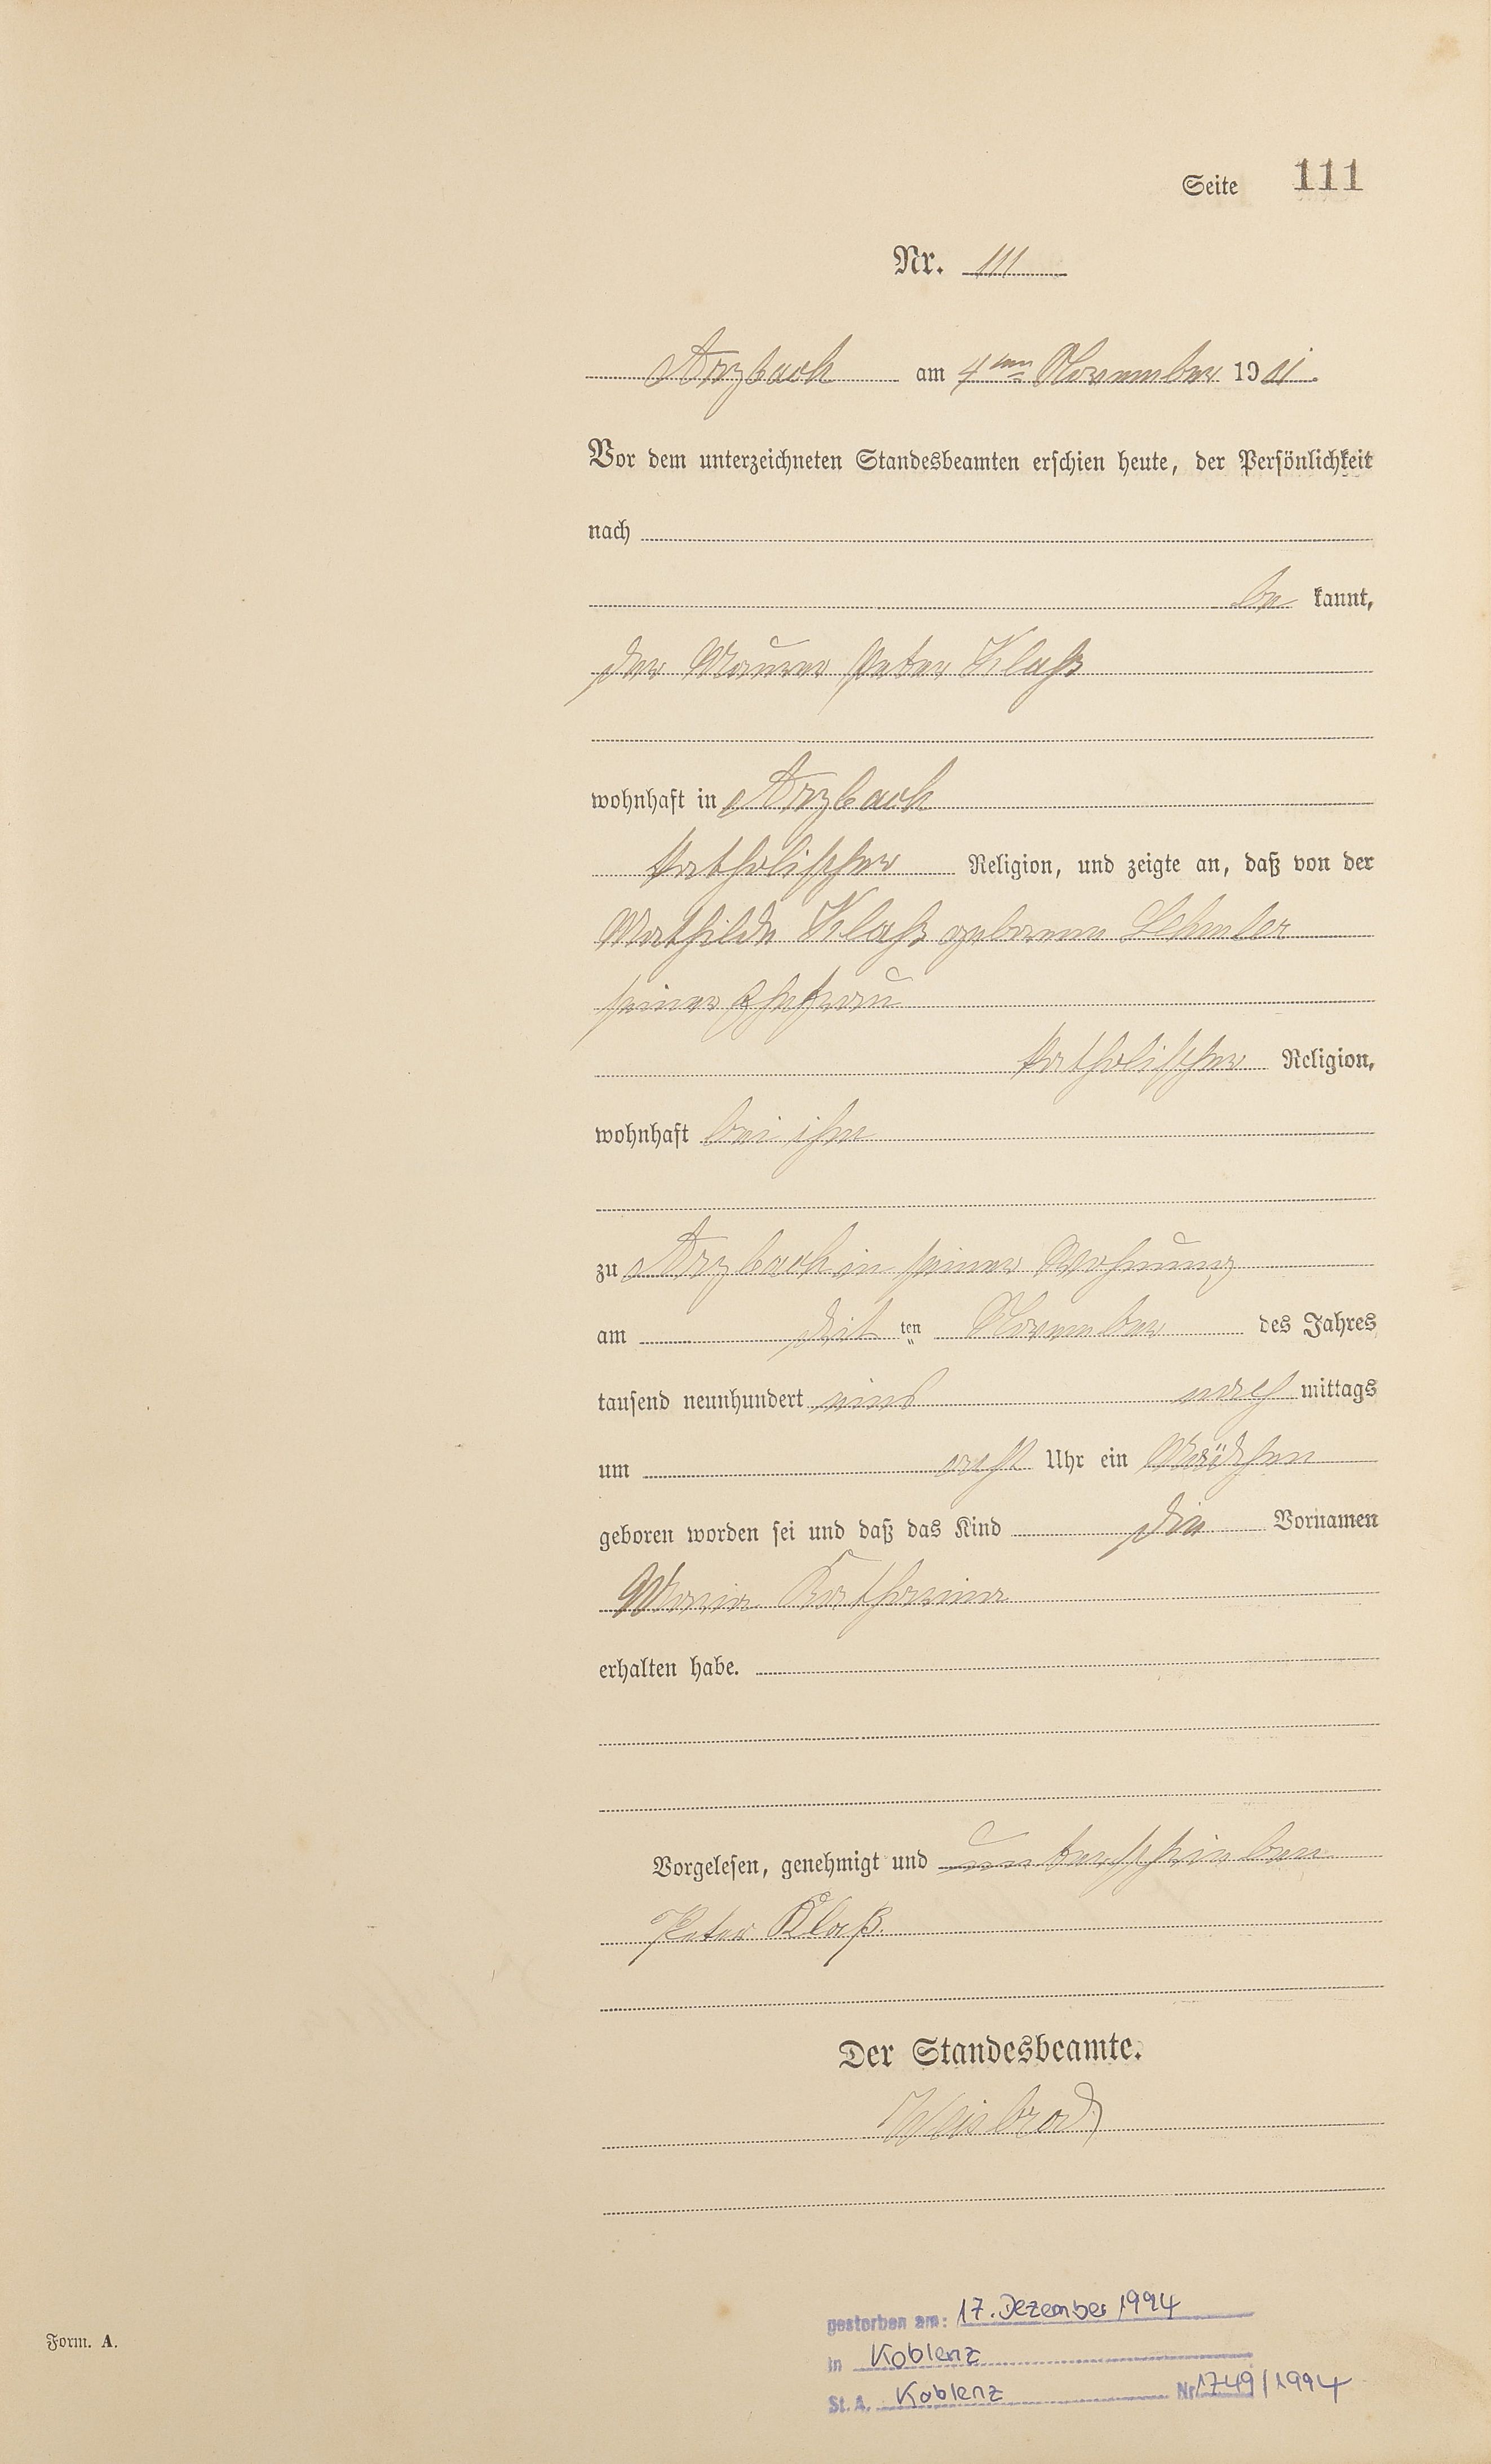 Seite 111
Nr. 111
Arzbach am 4ten November 1901.
Vor dem unterzeichneten Standesbeamten erschien heute, der Persönlichkeit
nach
be kannt,
der Maurer Peter Klaß
wohnhaft in Arzbach
katholischer Religion, und zeigte an, daß von der
Mathilde Klaß geborenen Lehmler
seiner Ehefrau
katholischer Religion,
wohnhaft bei ihm
zu Arzbach in seiner Wohnung
am ten November des Jahres
tausend neunhundert eins nach mittags
um acht Uhr ein Mädchen
geboren worden sei und daß das Kind die Vornamen
Maria Katharina
erhalten habe.
Vorgelesen, genehmigt und unterschrieben
Peter Klaß.
Der Standesbeamte.
Weisbrod
gestorben am: 17. Dezember 1994
in Koblenz
St. A. Koblenz Nr 1749/1994
Form. A.